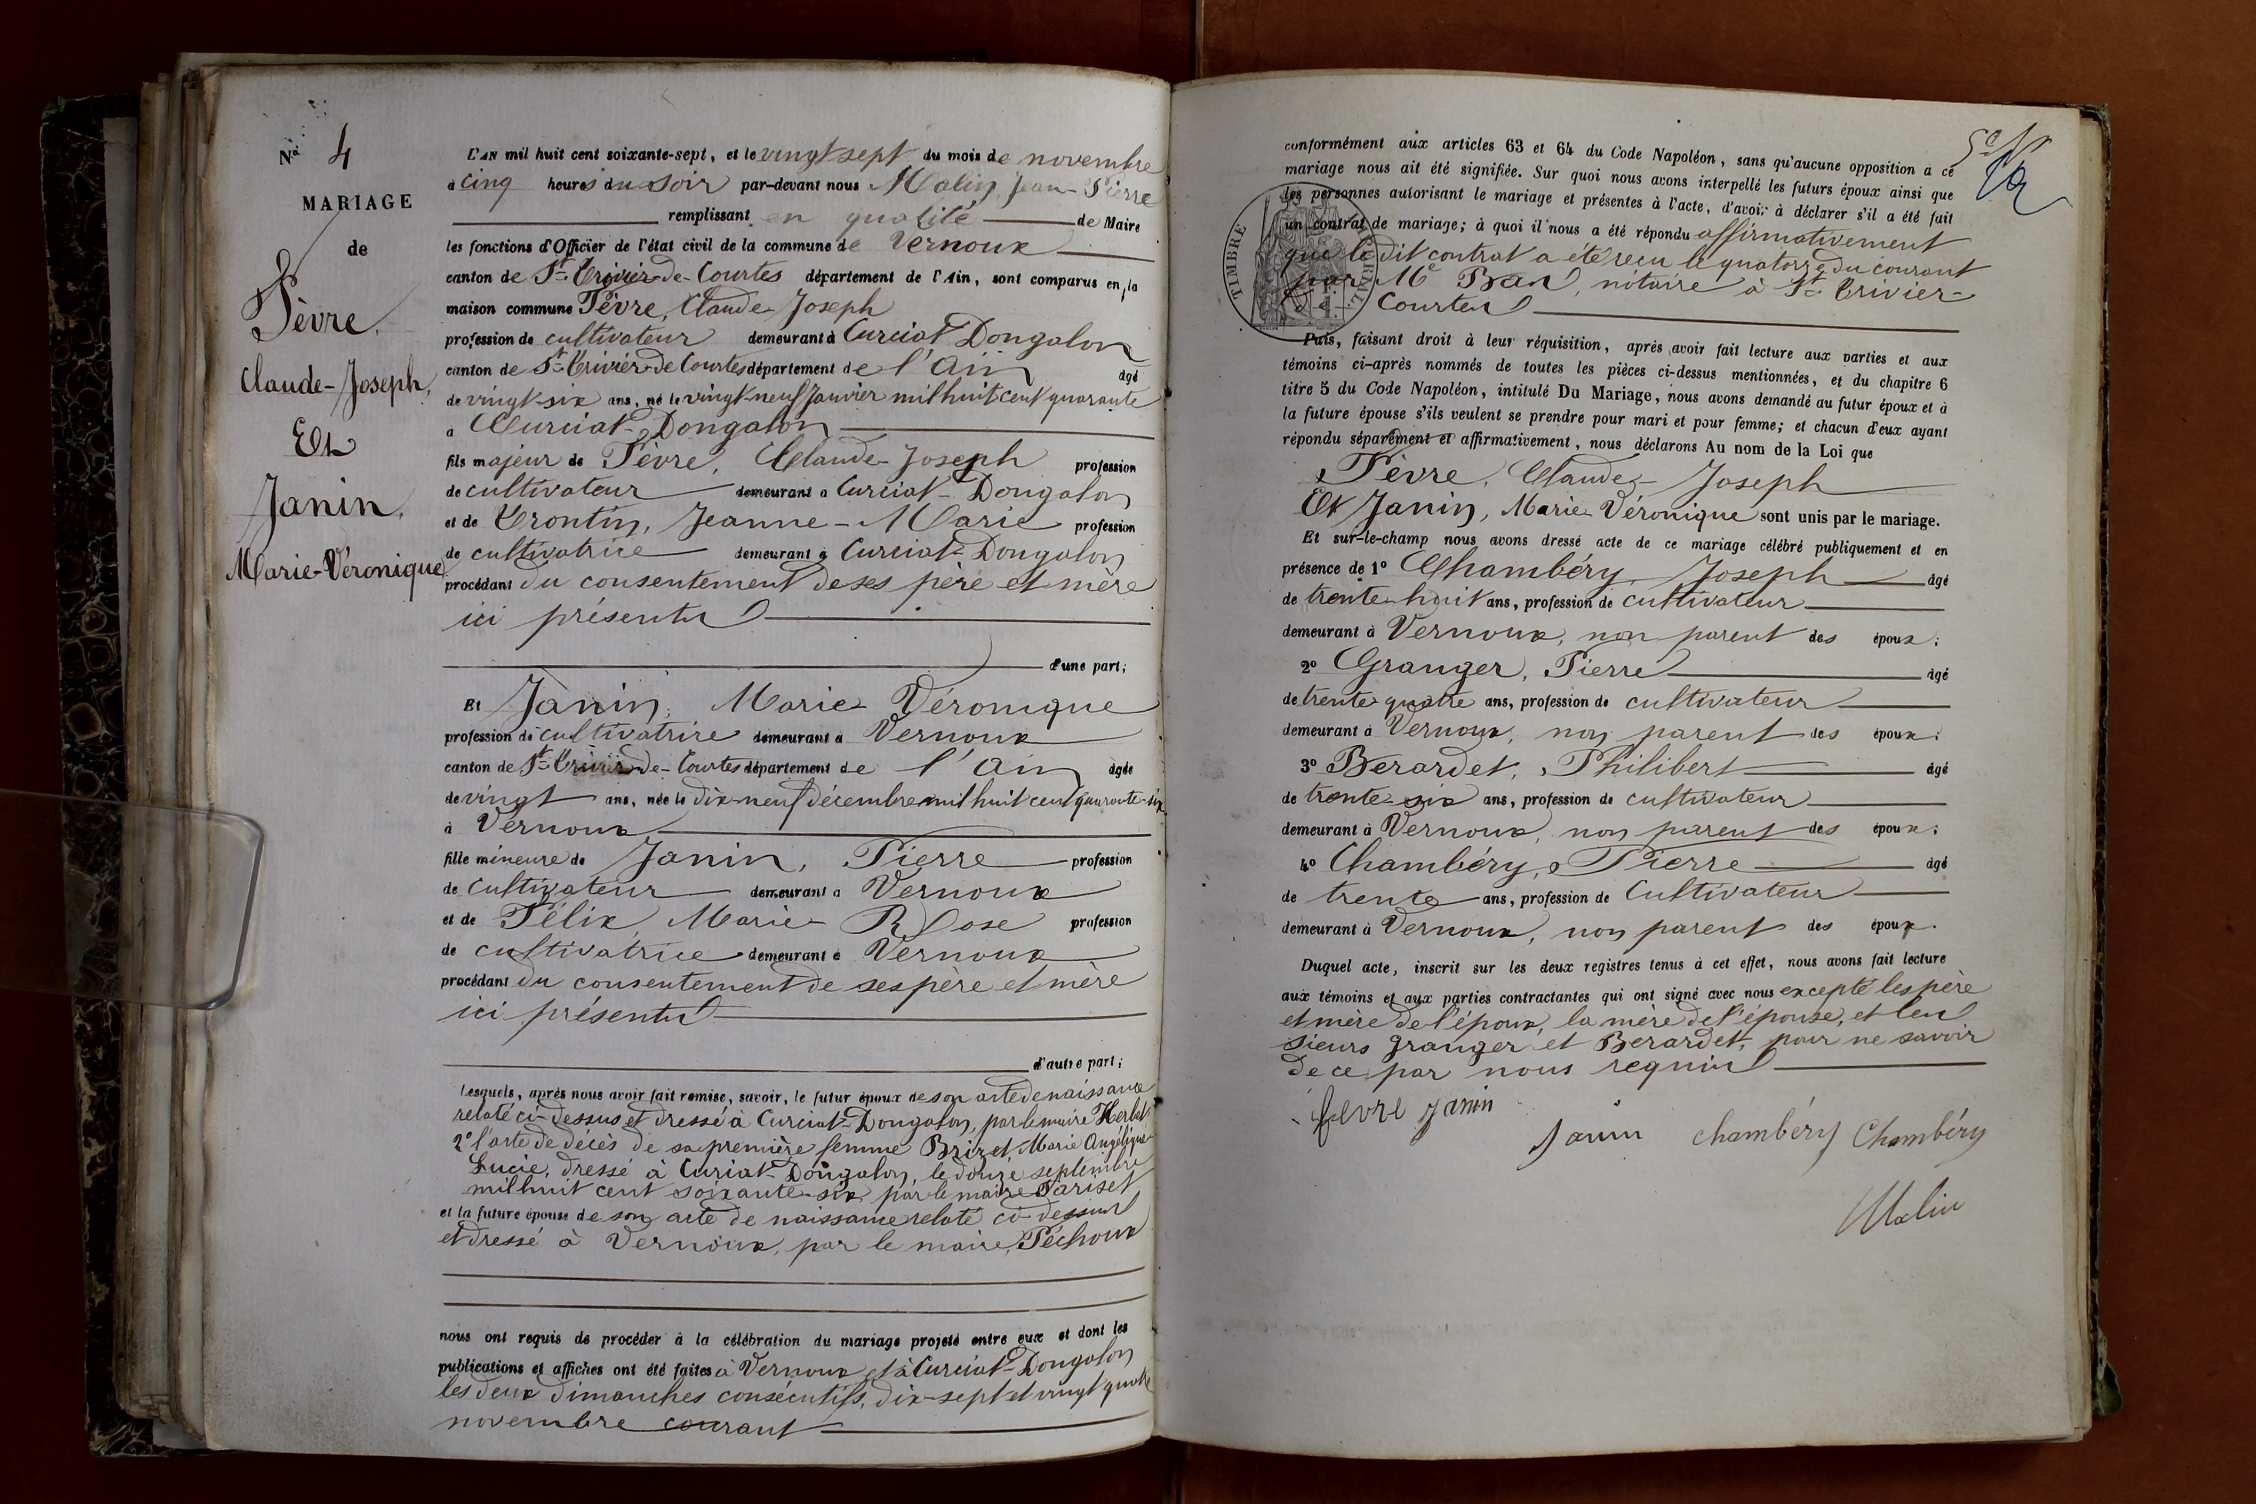 No 4
MARIAGE
de
Fèvre,
Claude-Joseph,
Et
Janin,
Marie-Véronique
L'AN mil huit cent soixante-sept, et le vingt sept du mois de novembre
à cinq heures du soir par-devant nous Malin, Jean-Pierre
remplissant en qualité de Maire
les fonctions d'Officier de l'état civil de la commune de Vernoux
canton de St-Trivier-de-Courtes département de l'Ain, sont comparus en la
maison commune Fèvre, Claude-Joseph
profession de cultivateur demeurant à Curciat-Dongalon
canton de St-Trivier-de-Courtes département de l'Ain âgé
de vingt-six ans, né le vingt-neuf Janvier mil huit cent quarante
à Curciat-Dongalon
fils majeur de Fèvre, Claude-Joseph profession
de cultivateur demeurant à Curciat-Dongalon
et de Trontin, Jeanne-Marie profession
de cultivatrice demeurant à Curciat-Dongalon
procédant du consentement de ses père et mère
ici présents
d'une part;
Et Janin, Marie-Véronique
profession de cultivatrice demeurant à Vernoux
canton de St-Trivier-de-Courtes département de l'Ain âgée
de vingt ans, née le dix-neuf décembre mil huit cent quarante-six
à Vernoux
fille mineure de Janin, Pierre profession
de cultivateur demeurant à Vernoux
et de Félix, Marie-Rose profession
de cultivatrice demeurant à Vernoux
procédant du consentement de ses père et mère
ici présents
d'autre part;
Lesquels, après nous avoir fait remise, savoir, le futur époux de son acte de naissance
relaté ci-dessus et dressé à Curciat-Dongalon, par le maire Herbet
2º l'acte de décès de sa première femme Brizet, Marie Angélique
Lucie, dressé à Curciat-Dongalon, le douze septembre
mil huit cent soixante-six par le maire Pariset
et la future épouse de son acte de naissance relaté ci-dessus
et dressé à Vernoux, par le maire, Péchoux
nous ont requis de procéder à la célébration du mariage projeté entre eux et dont les
publications et affiches ont été faites à Vernoux et à Curciat-Dongalon
les deux dimanches consécutifs, dix-sept et vingt quatre
novembre courant
conformément aux articles 63 et 64 du Code Napoléon, sans qu'aucune opposition à ce
mariage nous ait été signifiée. Sur quoi nous avons interpellé les futurs époux ainsi que
les personnes autorisant le mariage et présentes à l'acte, d'avoir à déclarer s'il a été fait
un contrat de mariage; à quoi il nous a été répondu affirmativement
que le dit contrat a été reçu le quatorze du courant
par Me notaire à St-Trivier-
de Courtes
TIMBRE
Puis, faisant droit à leur réquisition, après avoir fait lecture aux parties et aux
témoins ci-après nommés de toutes les pièces ci-dessus mentionnées, et du chapitre 6
titre 5 du Code Napoléon, intitulé Du Mariage, nous avons demandé au futur époux et à
la future épouse s'ils veulent se prendre pour mari et pour femme; et chacun d'eux ayant
répondu séparément et affirmativement, nous déclarons Au nom de la Loi que
Fèvre, Claude-Joseph
Et Janin, Marie-Véronique sont unis par le mariage.
Et sur-le-champ nous avons dressé acte de ce mariage célébré publiquement et en
présence de 1º Chambéry, Joseph âgé
de trente-huit ans, profession de cultivateur
demeurant à Vernoux, non parent des époux;
2º Granger, Pierre âgé
de trente-quatre ans, profession de cultivateur
demeurant à Vernoux, non parent des époux;
3º Berardet, Philibert âgé
de trente-six ans, profession de cultivateur
demeurant à Vernoux, non parent des époux;
4º Chambéry, Pierre âgé
de trente ans, profession de cultivateur
demeurant à Vernoux, non parent des époux.
Duquel acte, inscrit sur les deux registres tenus à cet effet, nous avons fait lecture
aux témoins et aux parties contractantes qui ont signé avec nous excepté les père
et mère de l'époux, la mère de l'épouse, et les
sieurs Granger et Berardet, pour ne savoir
de ce par nous requis
fevre janin
Janin chambéry Chambéry
Malin